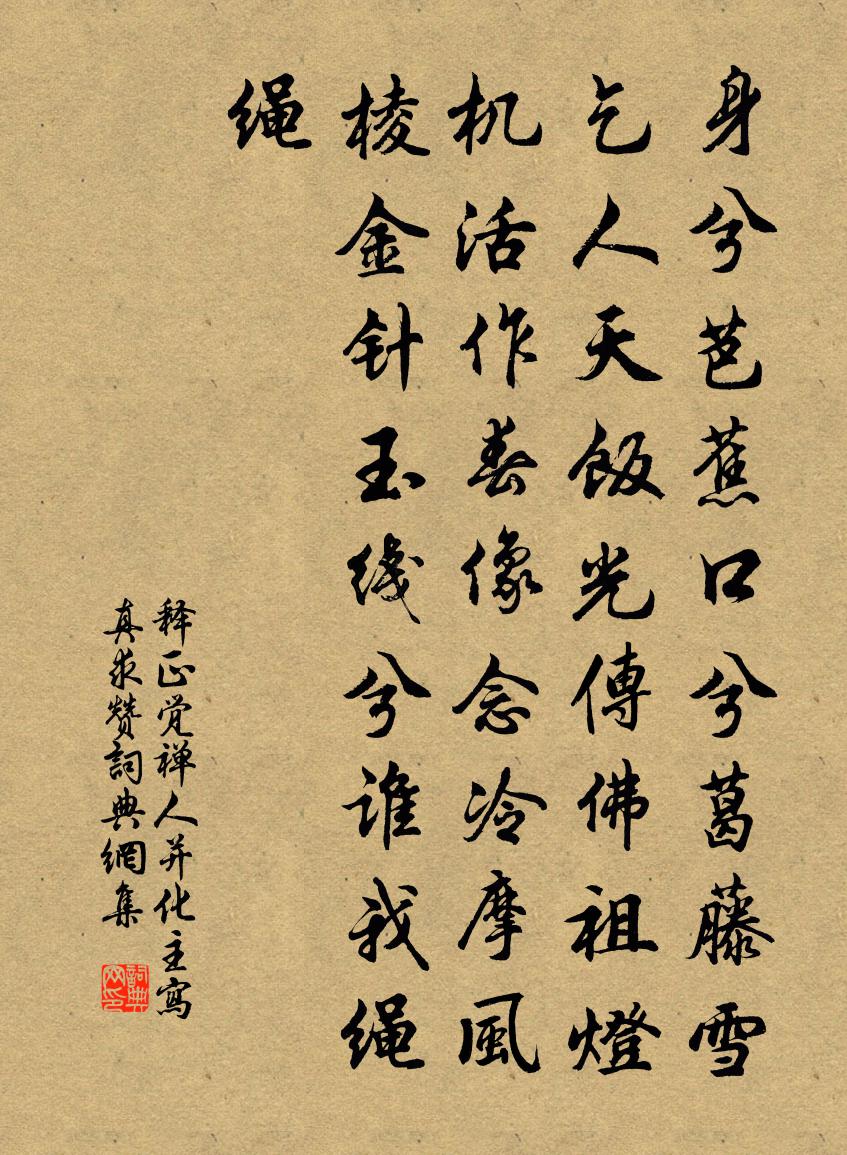 身兮芭蕉口兮葛藤雪
乞人天飯光傳佛祖燈
机活作春像念冷摩風
棱金针玉线兮谁我绳
绳
释正觉禅人并化主寫
真求赞詞典網集
詞典网印